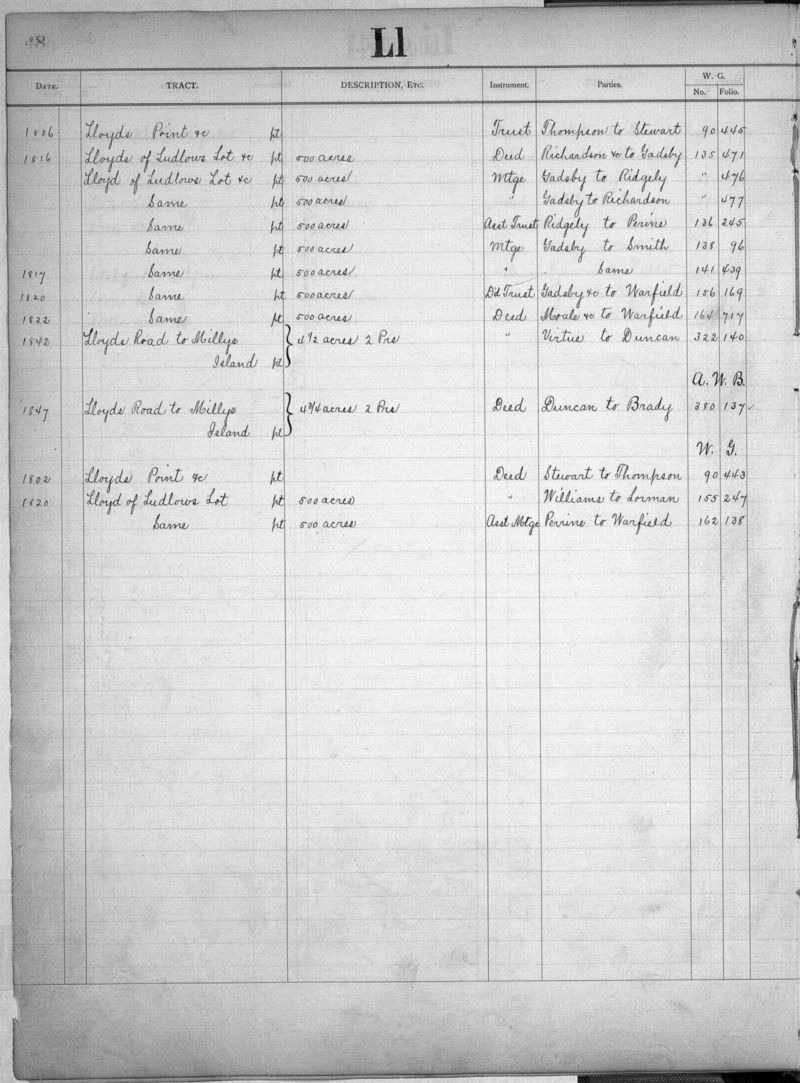 48
Ll
DATE. TRACT. DESCRIPTION, ETC. Instrument. Parties. W. G.
No. Folio.
1806 Lloyds Point &c pt Trust Thompson to Stewart 90 445
1816 Lloyds of Ludlows Lot &c pt 500 acres Deed Richardson &c to Gadsby 135 471
Lloyd of Ludlows Lot &c pt 500 acres Mtge Gadsby to Ridgely " 476
Same pt 500 acres " Gadsby to Richardson " 477
Same pt 500 acres Asst Trust Ridgely to Perine 136 245
Same pt 500 acres Mtge Gadsby to Smith 138 96
1817 Same pt 500 acres " Same 141 439
1820 Same pt 500 acres Dd Trust Gadsby &c to Warfield 156 169
1822 Same pt 500 acres Deed Moale &c to Warfield 164 717
1842 Lloyds Road to Millys } 4 1/2 acres 2 Prs " Virtue to Duncan 322 140
Island pt
A. W. B.
1847 Lloyds Road to Millys } 4 3/4 acres 2 Prs Deed Duncan to Brady 380 137
Island pt
W. G.
1802 Lloyds Point &c pt Deed Stewart to Thompson 90 443
1820 Lloyd of Ludlows Lot pt 500 acres " Williams to Lorman 155 247
Same pt 500 acres Asst Mtge Perrine to Warfield 162 138